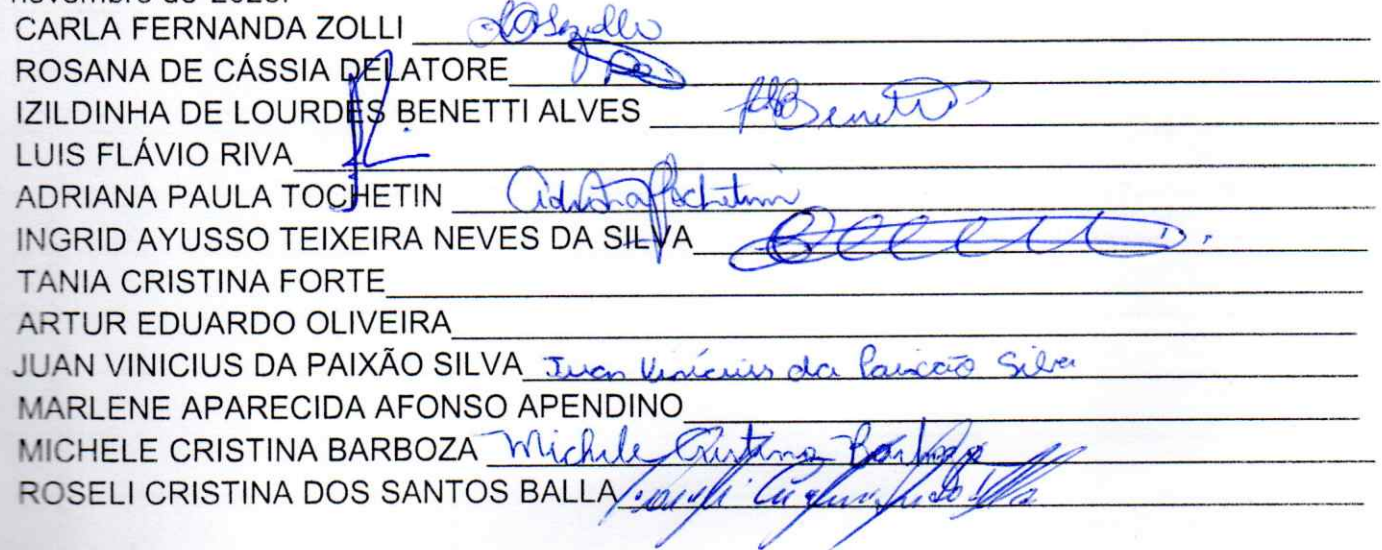 novembro de 2023.
CARLA FERNANDA ZOLLI
ROSANA DE CÁSSIA DELATORE
IZILDINHA DE LOURDES BENETTI ALVES Benetti
LUIS FLÁVIO RIVA
ADRIANA PAULA TOCHETIN Adriana Tochetin
INGRID AYUSSO TEIXEIRA NEVES DA SILVA
TANIA CRISTINA FORTE
ARTUR EDUARDO OLIVEIRA
JUAN VINICIUS DA PAIXÃO SILVA Juan Vinícius da Paixão Silva
MARLENE APARECIDA AFONSO APENDINO
MICHELE CRISTINA BARBOZA Michele Cristina Barboza
ROSELI CRISTINA DOS SANTOS BALLA